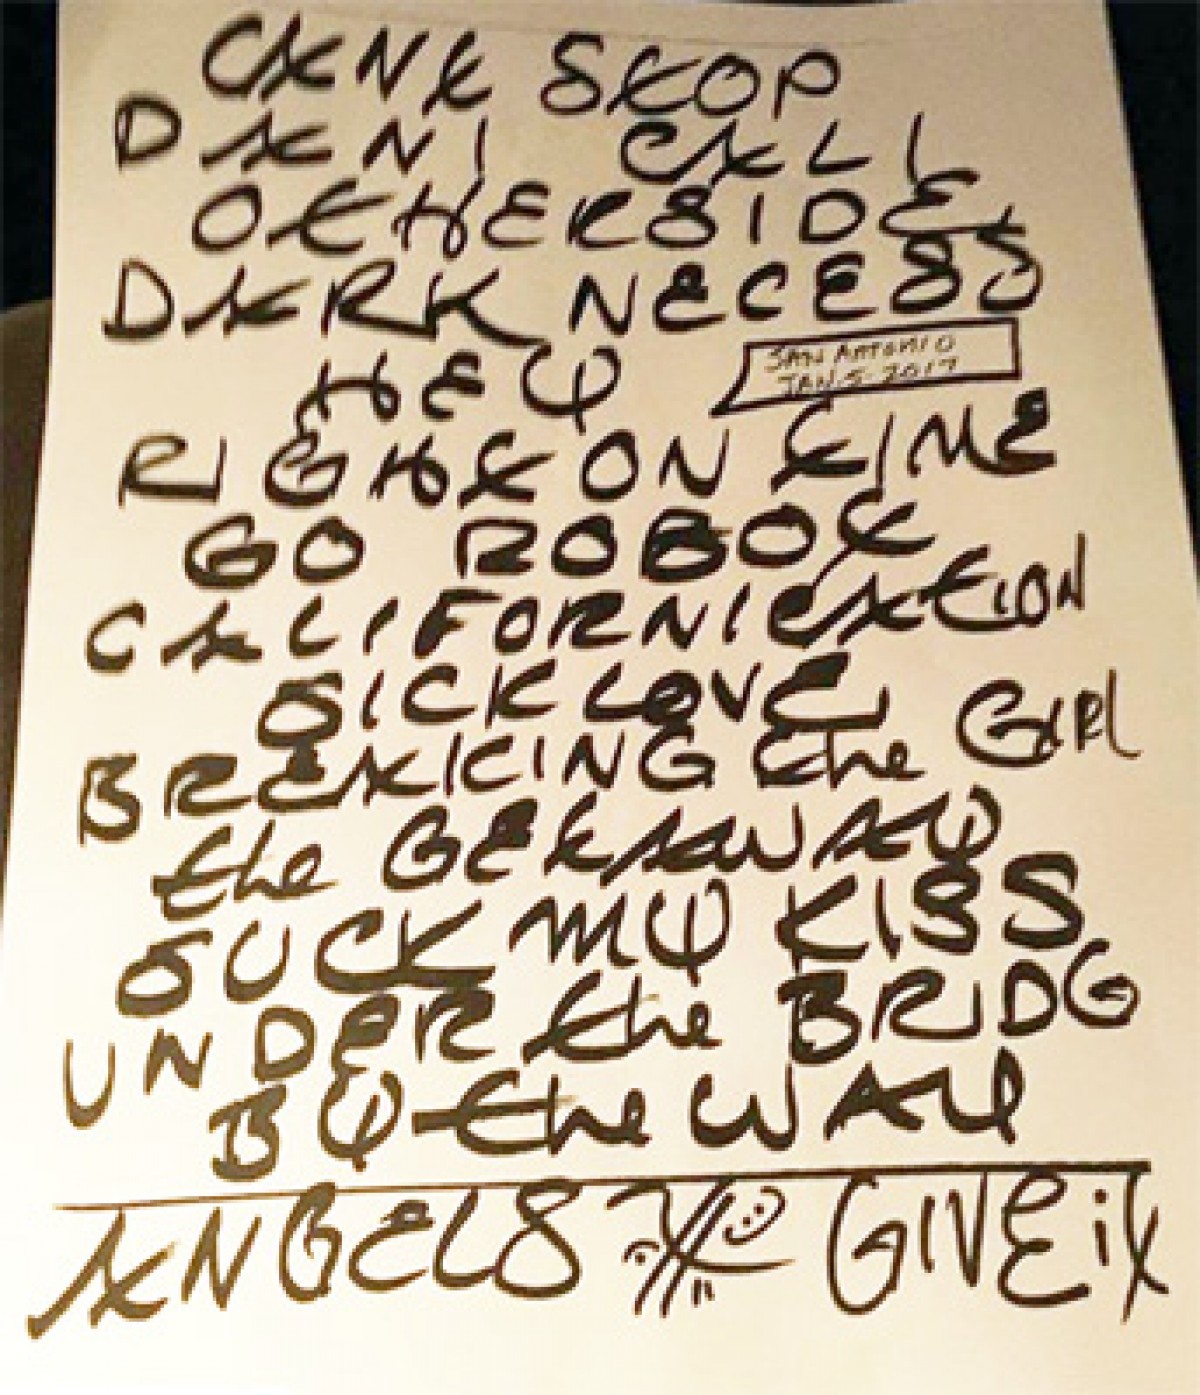 CANT STOP
DANI CALI
OTHERSIDE
DARK NECESS
HEY
SAN ANTONIO
JAN-5-2017
RIGHT ON TIME
GO ROBOT
CALIFORNICATION
SICK LOVE
BREAKING the GIRL
the GETAWAY
SUCK MY KISS
UNDER the BRIDG
BY the WAY
ANGELS GIVE it